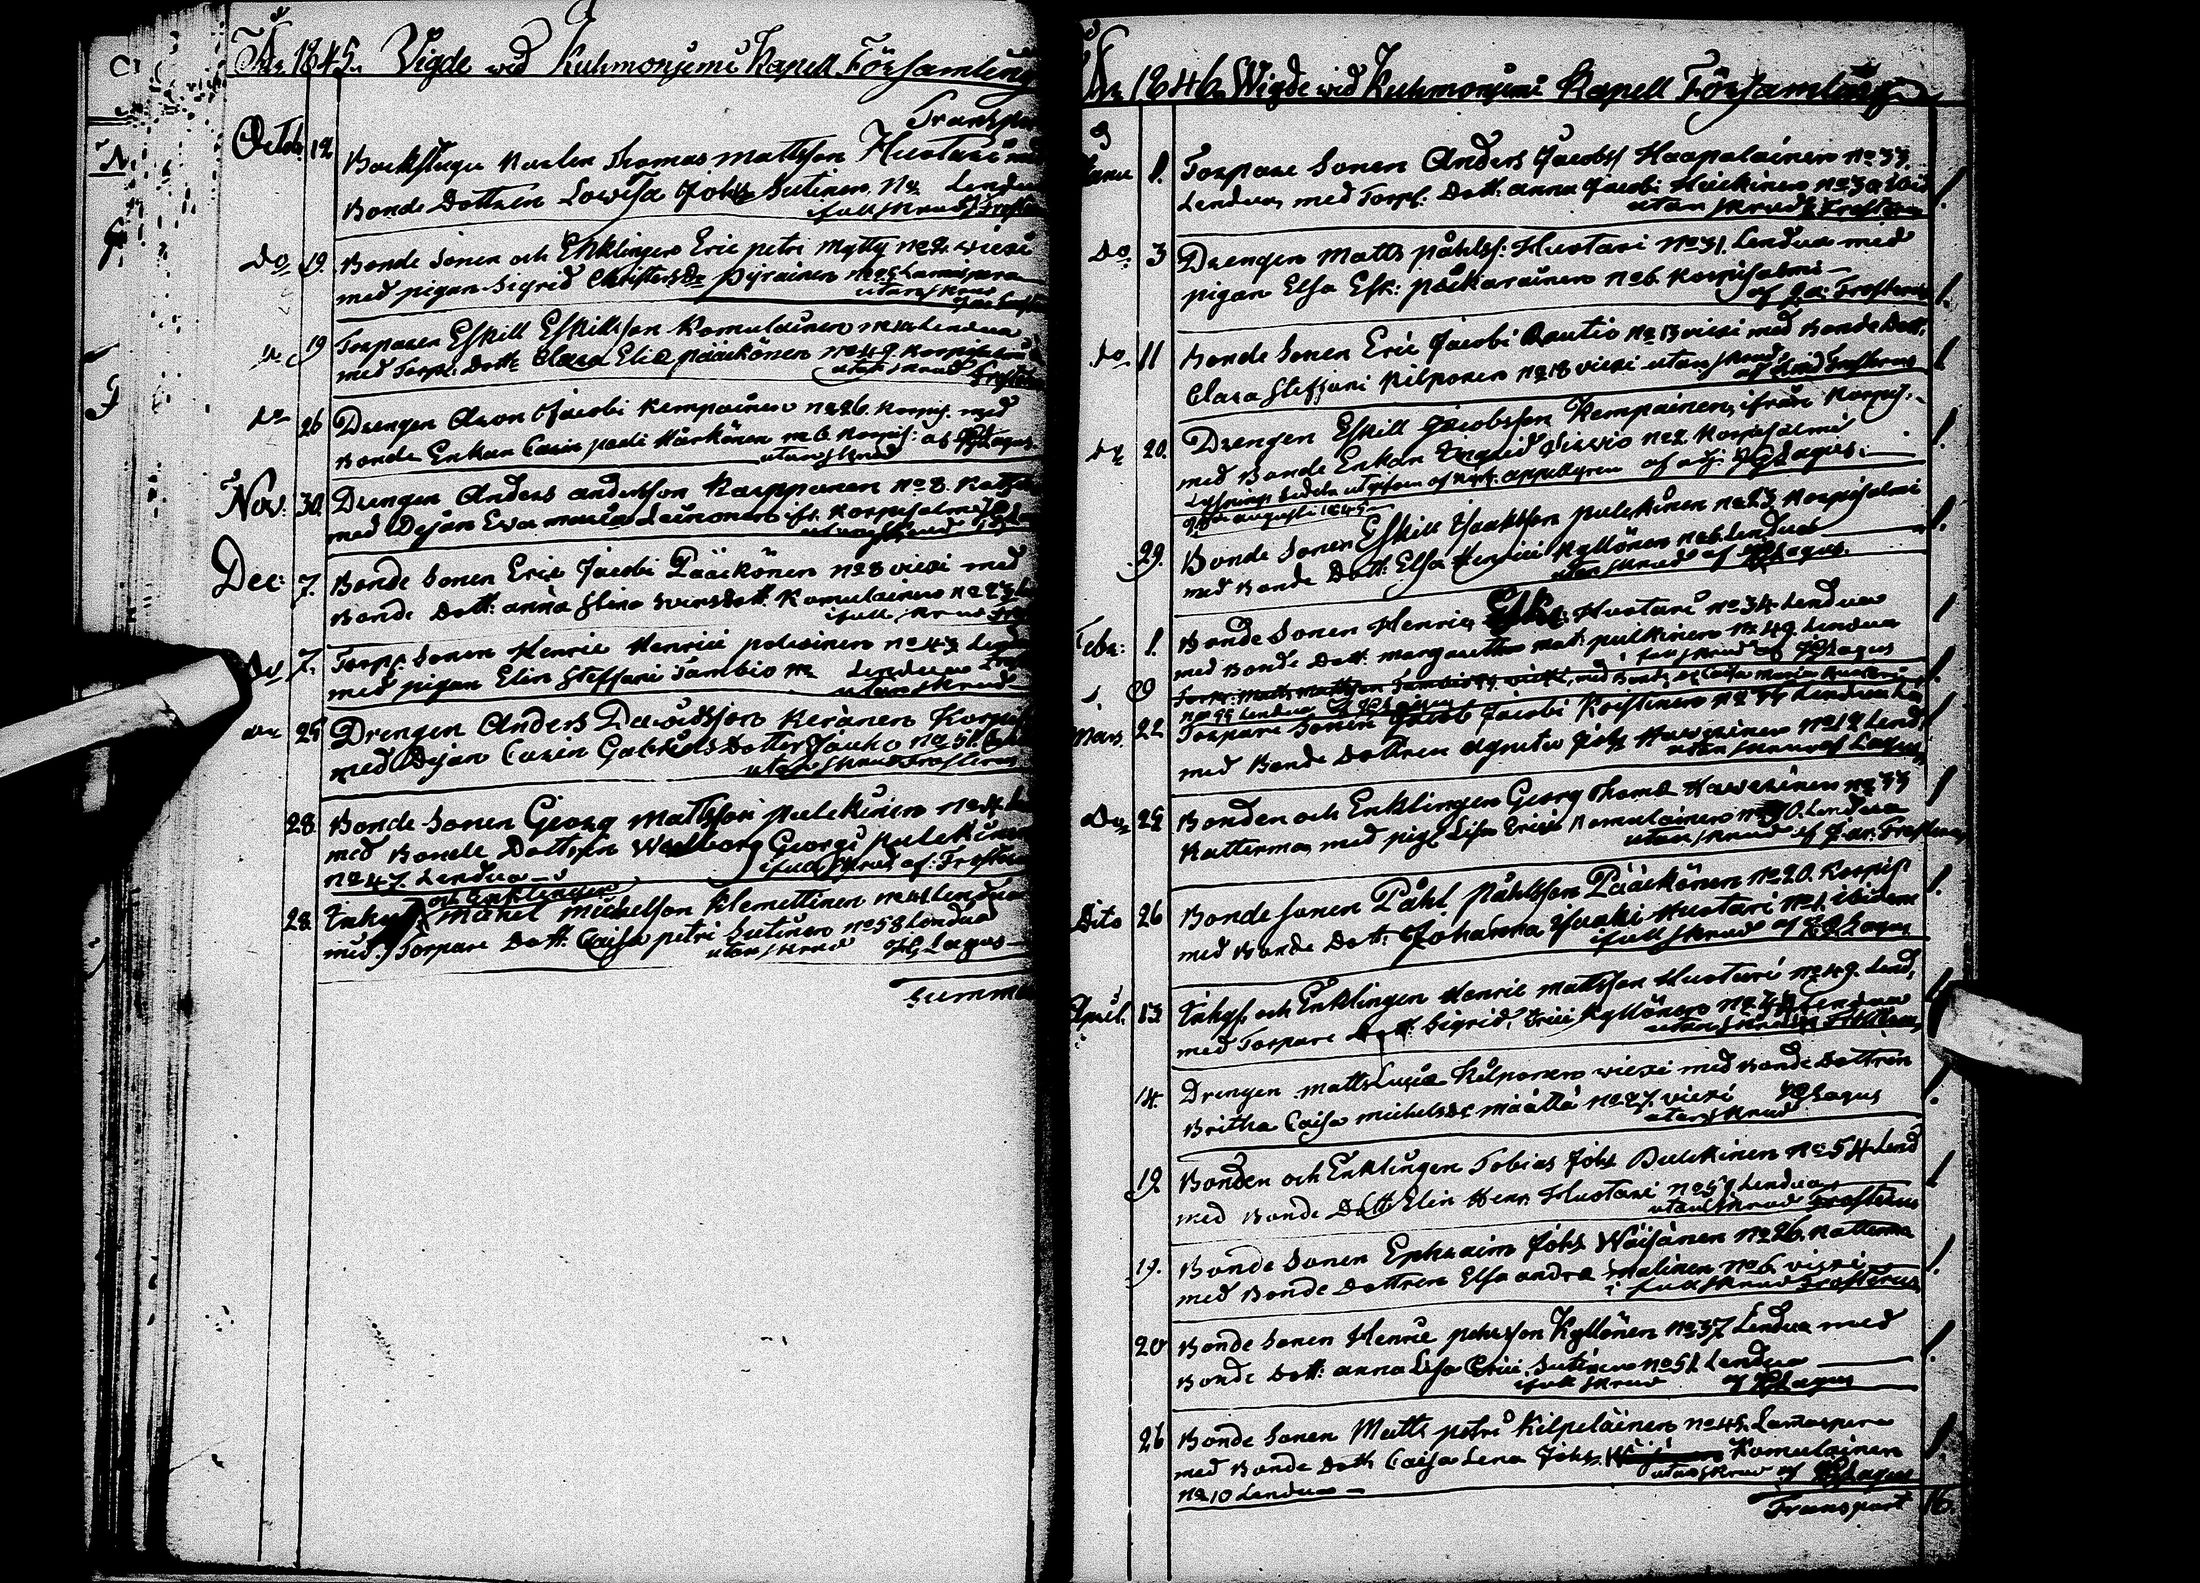 År 1845. Vigde wid Kuhmoniemi Kapell Församling
Transpor
Octob. 12 Backstugu Karlen Thomas Mattsson Huotari med
Bonde Dottren Lowisa Johs Sutinen No Lendua
i full skrud Frosterus
Do 19. Bonde Sonen och Enklingen Eric Petri Mytty No 2. Wiexi
med pigan Sigrid Christers Dr Pyrainen Lammaspera
utan skrud
19 Torparen Eskill Eskillsson Komulainen Lendua
med Torp: Dott: Clara Elis Pääckönen No 49. Korpisalmi
utan skrud Frosterus
Do 26 Drengen Aron Jacobi Kempainen No 26. Korpis. med
Bonde Enkan Carin Pauli Härkönen No 6 Korpis: af Lagus
utan skrud
Nov: 30. Drengen Anders Andersson Karppanen No 8. Katter
med Dejan Eva Maria Leinonen fr. Korpisalmi
utan skrud
Dec: 7. Bonde Sonen Eric Jacobi Pääckönen No 8 Wiexi med
Bonde Dott: Anna Stina Svensdott. Komulainen No 23
i full skrud
Do 7. Torp. Sonen Henric Henrici Polvinen No 43 Lendu
med pigan Elin Steffani Tambio No Lendua
utan skrud
Do 25 Drengen Anders Davidsson Keränen Korpis
med Dejan Carin Gabriels Dotter Jauho No 51.
utan skrud Frosterus
28. Bonde Sonen Georg Mattsson Pulckinen No 4. Len
med Bonde Dottren Walborg Georgi Pulckinen
No 47. Lendua i full skrud af: Frosterus
och Enklingen
28. Inhys Michel Michelsson Klemettinen Lendua
med Torpare Dott: Caisa Petri Sutinen No 58 Lendua
utan skrud Lagus
Summa
År 1846. Wigde wid Kuhmoniemi Kapell Församling
Janu 1. Torpare Sonen Anders Jacobss Haapalainen No 33
Lendua, med Torp: Dott: Anna Jacobi Heickinen No 30 ibid
utan skrud Frosterus 1.
Do 3 Drengen Matts Påhlss: Huotari No 31. Lendua med
pigan Elsa Esk: Pickarainen No 6. Korpisalmi
af Frosterus 1.
Do 11 Bonde Sonen Eric Jacobi Rautio No 13 Wiexi med Bonde Dott.
Clara Steffani Kilponen No 18 Wiexi utan skrud
af Frosterus 1
Do 20. Drengen Eskill Jacobsson Kempainen, ifrån Korpis.
med Bonde Enkan Ingrid No 2 Korpisalmi 1.
Lysnings Sedeln utgifven af Appellgren af Lagus.
Augusti 1845
29. Bonde Sonen Eskill Isaksson Pulckinen No 23 Korpisalmi
med Bonde Dott: Elsa Henrici Kyllönen No 6 Lendua 1.
utan skrud af Lagus.
Febr: 1. Bonde Sonen Henric Huotari No 34 Lendua
med Bonde Dott: Margaretha Mat: Pulkinen No 49. Lendua 1
full skrud af Lagus
Torp. Matts Mattsson Tambio Wiexi, med Bonde Caisa Maria
No 55 Lendua 1.
Mars. 22 Torpare Sonen Jacob Jacobi Koistinen No 34 Lendua
med Bonde Dottren Agneta Johs Haverinen No 12 Lend 1
utan skrud af Lagus
Do 25 Bonden och Enklingen Georg Thomæ Haverinen No 33
Katterma, med pig. Lisa Erici Komulainen No 30. Lendua 1
utan skrud af Frosterus
Dito 26 Bonde Sonen Påhl Påhlsson Pääckönen No 20. Korpis
med Bonde Dott: Johanna Isaki Huotari No 1. ibidem 1.
i full skrud af Lagus
April. 13 Inhys. och Enklingen Henric Mattsson Huotari No 49. Lend,
med Torpare Dott: Sigrid, Erici Kyllönen Lendua 1
utan skrud
14. Drengen Matts Lucæ Kilponen Wiexi med Bonde Dottren
Britha Caisa Michelsdr Määttä No 27. Wiexi Lagus 1.
utan skrud
19 Bonden och Enklingen Tobias Johs Pulckinen No 54 Lend
med Bonde Dott Elin Henr. Huotari No 59. Lendua 1
utan skrud Frosterus
19. Bonde Sonen Ephraim Johs Wäisänen No 26. Katterma
med Bonde Dottren Elsa Andræ Malinen No 6. Wiexi 1.
i full skrud Frosterus
20 Bonde Sonen Henric Petersson Kyllönen No 37. Lendua med
Bonde Dott: Anna Lisa Erici Sutinen No 51 Lendua 1.
i full skrud af Lagus
26 Bonde Sonen Matts Petri Kilpeläinen No 45. Lamaspera
med Bonde Dott Caisa Lena Johs Komulainen 1
utan skrud af Lagus
No 10 Lendua
Transport 16.